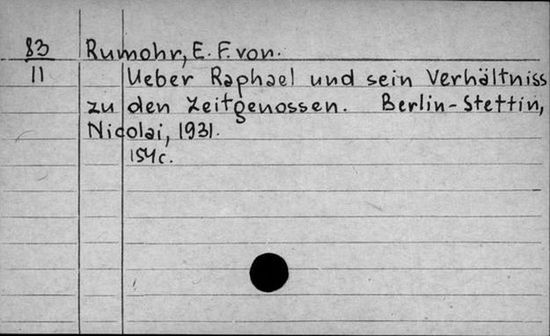 83
11
Rumohr, E. F. von.
Ueber Raphael und sein Verhältniss
zu den Zeitgenossen. Berlin-Stettin,
Nicolai, 1931.
154 c.